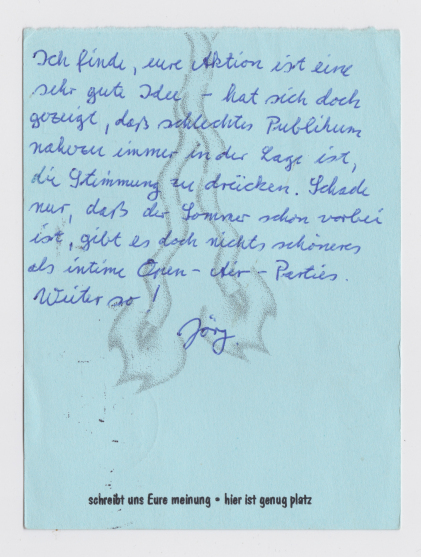 Ich finde, eure Aktion ist eine
sehr gute Idee – hat sich doch
gezeigt, daß schlechtes Publikum
nahezu immer in der Lage ist,
die Stimmung zu drücken. Schade
nur, daß der Sommer schon vorbei
ist, gibt es doch nichts schöneres
als intime Open-Air-Parties.
Weiter so!
Jörg
schreibt uns Eure meinung • hier ist genug platz